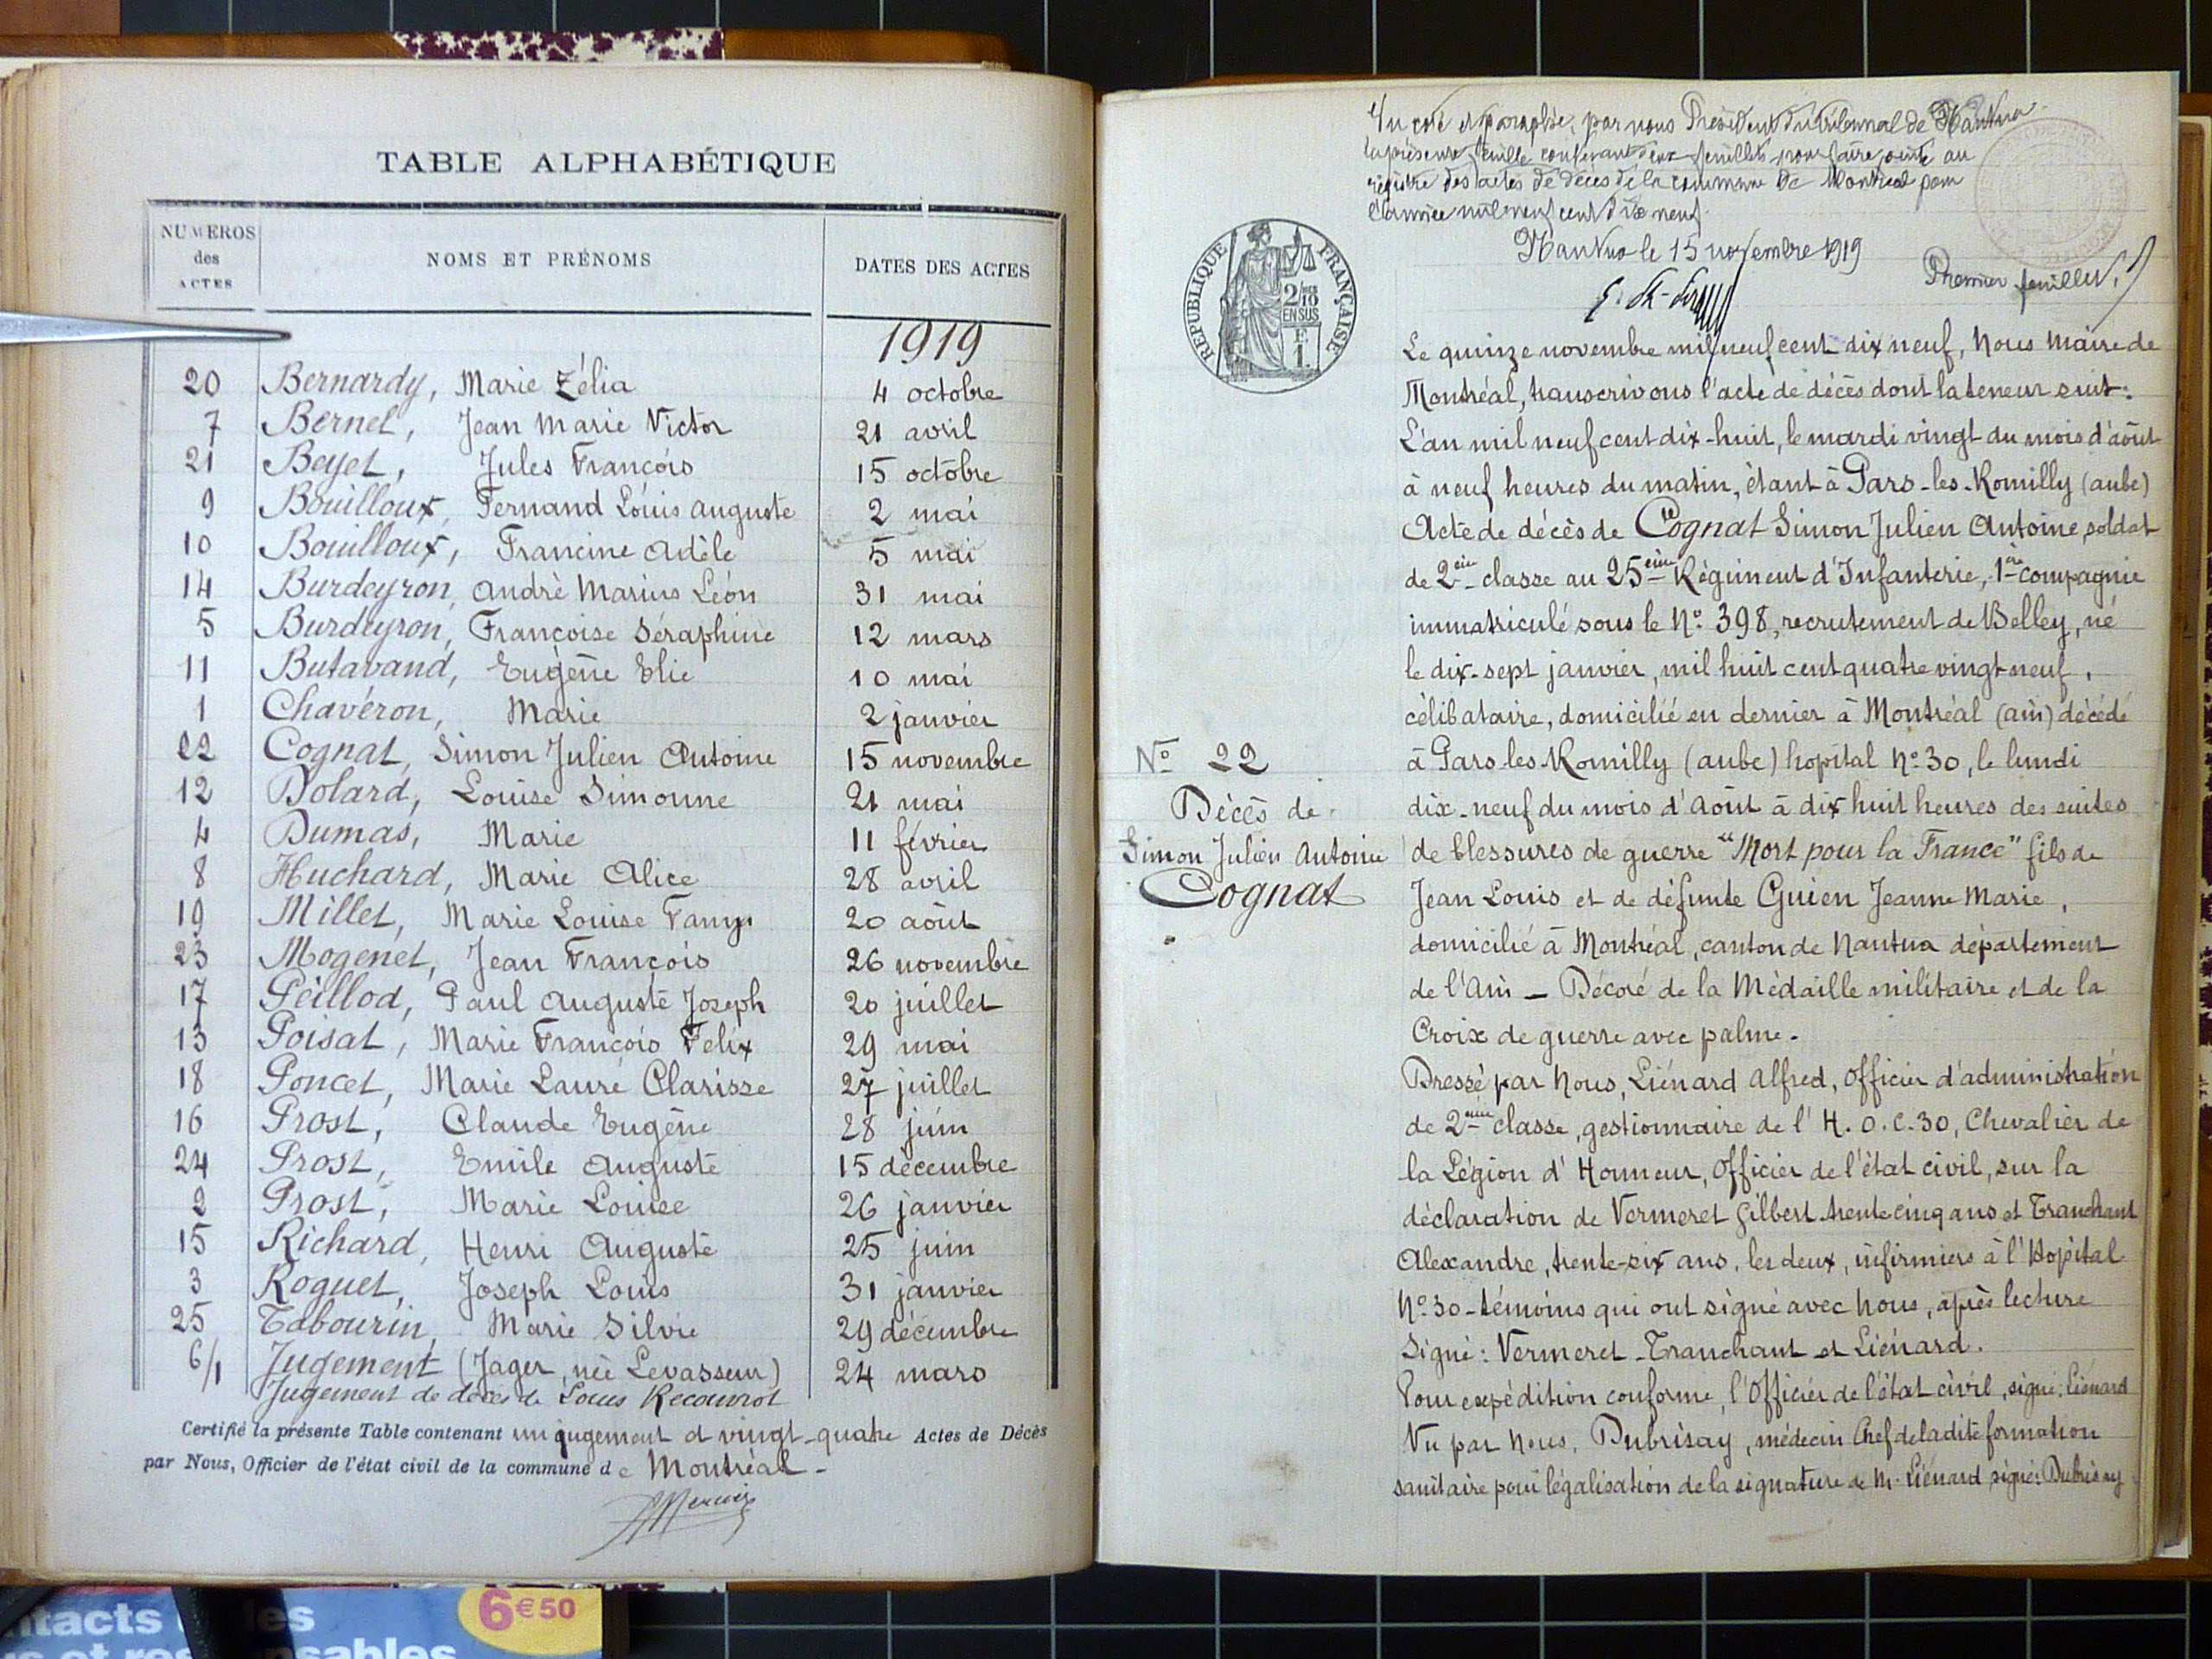 TABLE ALPHABÉTIQUE
NUMEROS
des
ACTES
NOMS ET PRÉNOMS
DATES DES ACTES
1919
20 Bernardy, Marie Zélia 4 octobre
7 Bernet, Jean Marie Victor 21 avril
21 Beyet, Jules François 15 octobre
9 Bouilloux, Fernand Louis Auguste 2 mai
10 Bouilloux, Francine Adèle 5 mai
14 Burdeyron, André Marius Léon 31 mai
5 Burdeyron, Françoise Séraphine 12 mars
11 Butavand, Eugène Elie 10 mai
1 Chavéron, Marie 2 janvier
22 Cognat, Simon Julien Antoine 15 novembre
12 Dolard, Louise Simonne 21 mai
4 Dumas, Marie 11 février
8 Huchard, Marie Alice 28 avril
19 Millet, Marie Louise Fany 20 août
23 Mogenet, Jean François 26 novembre
17 Péillod, Paul Auguste Joseph 20 juillet
13 Poisat, Marie François Félix 29 mai
18 Poncet, Marie Laure Clarisse 27 juillet
16 Prost, Claude Eugène 28 juin
24 Prost, Emile Auguste 15 décembre
2 Prost, Marie Louise 26 janvier
15 Richard, Henri Auguste 25 juin
3 Roguet, Joseph Louis 31 janvier
25 Tabourin, Marie Silvie 29 décembre
6/1 Jugement (Jager, née Levasseur) 24 mars
Jugement de décès de Louis Recouvrot
Certifié la présente Table contenant un jugement et vingt-quatre Actes de Décès
par Nous, Officier de l'état civil de la commune de Montréal -
Mercier
6€50
Vu coté et paraphé, par nous Président du Tribunal de Nantua
la présente feuille contenant deux feuillets pour faire suite au
régistre des actes de décès de la commune de Montréal pour
l'année mil neuf cent dix neuf.
Nantua le 15 novembre 1919
Premier feuillet.
RÉPUBLIQUE FRANÇAISE
2/10
EN SUS
F
1.
Le quinze novembre mil neuf cent dix neuf, Nous Maire de
Montréal, transcrivons l'acte de décès dont la teneur suit:
L'an mil neuf cent dix-huit, le mardi vingt du mois d'août
à neuf heures du matin, étant à Pars-les-Romilly (aube)
Acte de décès de Cognat Simon Julien Antoine, soldat
de 2ème classe au 25ème Régiment d'Infanterie, 1ère compagnie
immatriculé sous le No. 398, recrutement de Belley, né
le dix-sept janvier, mil huit cent quatre vingt-neuf,
célibataire, domicilié en dernier à Montréal (ain) décédé
No 22
à Pars-les-Romilly (aube) hopital No. 30, le lundi
Décès de
dix-neuf du mois d'Août à dix huit heures des suites
Simon Julien Antoine
de blessures de guerre "Mort pour la France" fils de
Cognat
Jean Louis et de défunte Guien Jeanne Marie,
domicilié à Montréal, canton de Nantua département
de l'Ain - Décoré de la Médaille militaire et de la
Croix de guerre avec palme.
Dressé par Nous, Liénard Alfred, Officier d'administration
de 2ème classe, gestionnaire de l'H.O.C. 30, Chevalier de
la Légion d'Honneur, Officier de l'état civil, sur la
déclaration de Vermeret Gilbert trente cinq ans et Tranchant
Alexandre, trente-six ans, les deux, infirmiers à l'Hopital
No. 30 - témoins qui ont signé avec Nous, après lecture
Signé: Vermeret - Tranchant et Liénard.
Pour expédition conforme, l'Officier de l'état civil, signé: Liénard
Vu par Nous, Dubrisay, médecin Chef de ladite formation
sanitaire pour légalisation de la signature de M. Liénard signé: Dubrisay